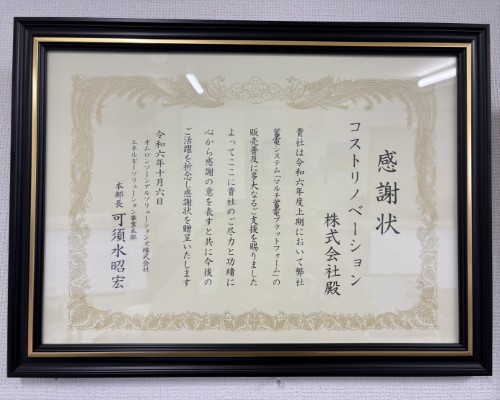 感謝状
コストリノベーション
株式会社殿
貴社は令和六年度上期において弊社
蓄電システム「マルチ蓄電プラットフォーム」の
販売普及に多大なるご支援を賜りました
よってここに貴社のご尽力と功績に
心から感謝の意を表すと共に今後の
ご活躍を祈念し感謝状を贈呈いたします
令和六年十月六日
オムロンソーシアルソリューションズ株式会社
エネルギーソリューション事業本部
本部長 可須水昭宏